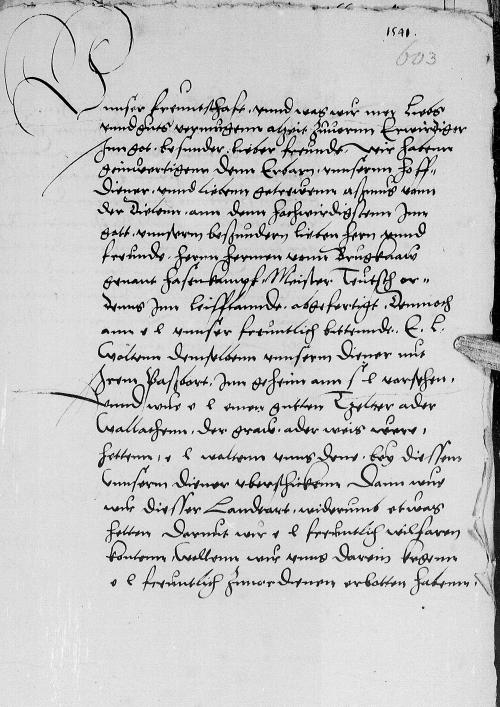 1541.
603
Unser freuntschaft, unnd was wir mer liebs
unnd guts vermugenn alzeit zuuornn Erwirdiger
Inn got, besunder, lieber freunde, Wir habenn
geinwertigenn denn Erbarn, unnsernn hoff-
diener, unnd liebenn getrewenn Aßmus vonn
der ann denn hochwirdigstenn Inn
gott, unnsernn besundern lieben hern unnd
freunde, hernn hermen vonn Brugkaaw
genant hasenkampf, Meister Teutsch or-
dens Inn leifflannde, abgefertigt, Demnoch
ann e l unnser freuntlich bittennde, E. L.
woltenn demselbenn unnserm diener mit
Irem Paßbort, Inn geheim ann s l vorsehen,
unnd wue e l einen gutten Tzelter ader
wallachenn, der graw, ader weis were,
hettenn, e l woltenn unns denn, bey diessem
unnserm diener uberschickenn Dann wue
wir diesser Landart, widerumb etwas
hetten Darmit wir e l freuntlich wilfaren
kontenn Woltenn wir unns darein kegenn
e l freuntlich zuuordienen erbotten habenn,